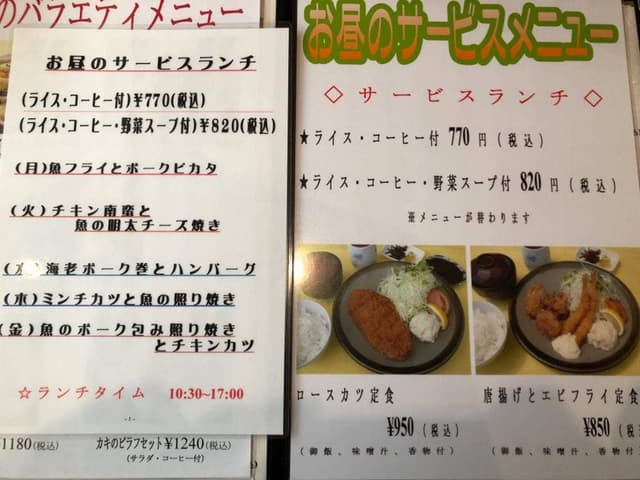 のバラエティメニュー
お昼のサービスランチ
(ライス・コーヒー付)¥770(税込)
(ライス・コーヒー・野菜スープ付)¥820(税込)
(月)魚フライとポークピカタ
(火)チキン南蛮と
魚の明太チーズ焼き
(水)海老ポーク巻とハンバーグ
(木)ミンチカツと魚の照り焼き
(金)魚のポーク包み照り焼き
とチキンカツ
☆ランチタイム 10:30~17:00
-1-
¥1180(税込)
カキのピラフセット¥1240(税込)
(サラダ・コーヒー付)
お昼のサービスメニュー
◇サービスランチ◇
★ライス・コーヒー付 770円(税込)
★ライス・コーヒー・野菜スープ付 820円(税込)
※メニューが替わります
ロースカツ定食
¥950(税込)
(御飯、味噌汁、香物付)
唐揚げとエビフライ定食
¥850(税込)
(御飯、味噌汁、香物付)